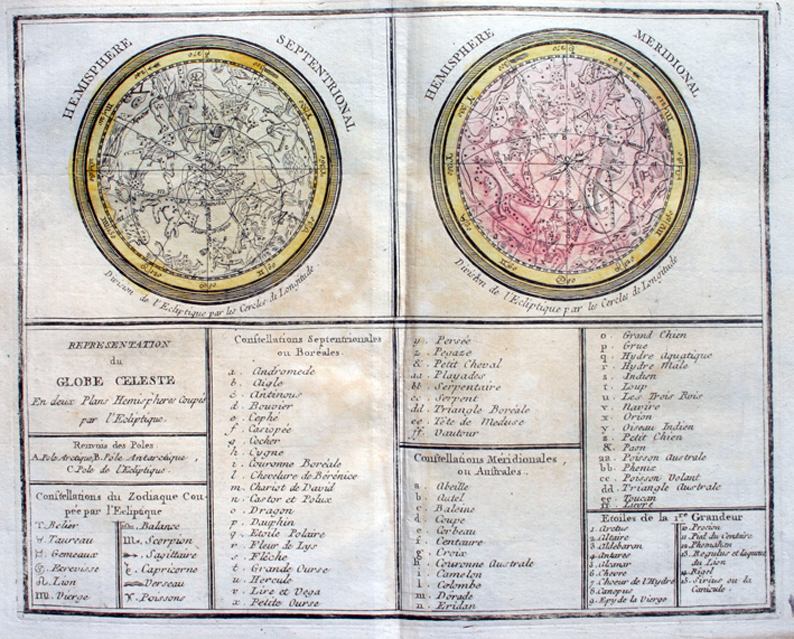 HEMISPHERE SEPTENTRIONAL
Division de l'Ecliptique par les Cercles de Longitude
HEMISPHERE MERIDIONAL
Division de l'Ecliptique par les Cercles de Longitude
REPRESENTATION
du
GLOBE CELESTE
En deux Plans Hemispheres Coupés
par l'Ecliptique.
Renvois des Poles
A. Pole Arctique, B. Pôle Antarctique,
C. Pole de l'Ecliptique.
Constellations du Zodiaque Cou-
pée par l'Ecliptique
♈. Belier
♉. Taureau
♊. Gemeaux
♋. Ecrevisse
♌. Lion
♍. Vierge
♎. Balance
♏. Scorpion
Sagittaire
Capricorne
Verseau
Poissons
Constellations Septentrionales
ou Boréales.
a. Andromede
b. Aigle
c. Antinous
d. Bouvier
e. Cephé
f. Casiopée
g. Cocher
h. Cygne
i. Couronne Boréale
l. Chevelure de Bérénice
m. Chariot de David
n. Castor et Polux
o. Dragon
p. Dauphin
q. Etoile Polaire
r. Fleur de Lys
s. Flèche
t. Grande Ourse
u. Hercule
v. Lire et Vega
x. Petite Ourse
y. Persée
z. Pegaze
&. Petit Cheval
aa. Playades
bb. Serpentaire
cc. Serpent
dd. Triangle Boréale
ee. Tête de Meduse
ff. Vautour
Constellations Méridionales,
ou Australes.
a. Abeille
b. Autel
c. Baleine
d. Coupe
e. Corbeau
f. Centaure
g. Croix
h. Couronne Australe
i. Camelon
l. Colombe
m. Dorade
n. Eridan
o. Grand Chien
p. Grue
q. Hydre Aquatique
r. Hydre Male
s. Indien
t. Loup
u. Les Trois Rois
v. Navire
x. Orion
y. Oiseau Indien
z. Petit Chien
&. Paon
aa. Poisson Australe
bb. Phenix
cc. Poisson Volant
dd. Triangle Australe
ee. Toucan
ff. Lievre
Etoiles de la 1.re Grandeur
1. Arctus
2. Altaire
3. Aldebaram
4. Antares
5.
6. Chevre
7. Choeur de l'Hydre
8. Canopus
9. Epy de la Vierge
10. Procion
11. Pied du Centaire
12.
13. Regulus et la queue
du Lion
14. Rigel
15. Sirius ou la
Canicule.